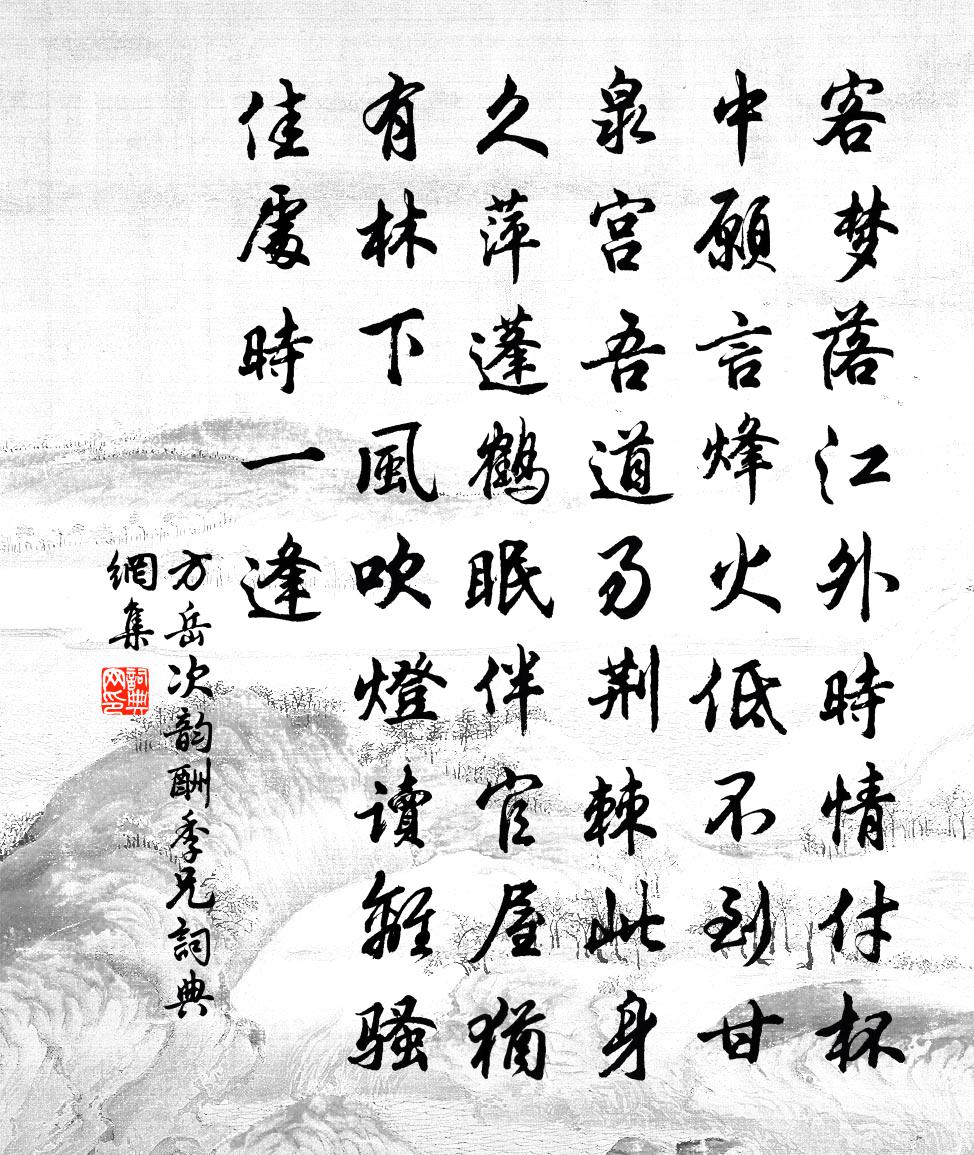 客梦落江外時情付杯
中願言烽火低不到甘
泉宫吾道荆棘此身
久萍蓬鶴眠伴官屋猶
有林下風吹燈读離骚
佳處時一逢
方岳次韵酬季兄詞典
網集
詞典
网印